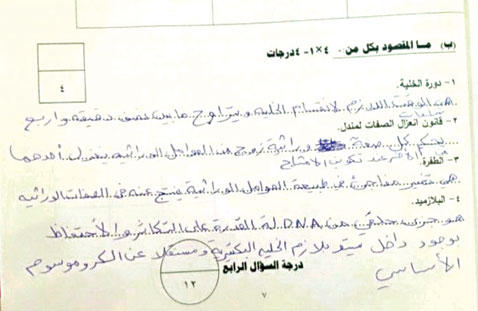 (ب) مـا المقصود بكل من: ٤×١=٤ درجات
٤
١- دورة الخلية.
هى الوقت اللازم لانقسام الخلية ويتراوح ما بين نصف دقيقة واربع
ساعات
٢- قانون انعزال الصفات لمندل.
يحكم كل صفة وراثية زوج من العوامل الوراثية ينعزل أحدهما
عن الآخر عند تكوين الامشاج
٣- الطفرة.
هى تغير مفاجئ فى طبيعة العوامل الوراثية ينتج عنه فى الصفات الوراثيه
٤- البلازميد.
هو جزئ حلقي من DNA له القدرة على التكاثر والاحتفاظ
بوجود داخل سيتوبلازم الخليه البكتيرية ومستقلا عن الكروموسوم
الأساسي
درجة السؤال الرابع
١٢
٧